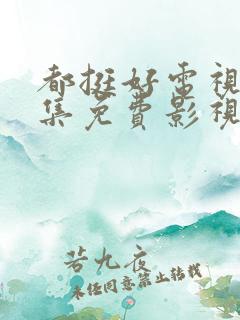 都挺好電視
集免費影視
若九夜
未经同意禁止转载